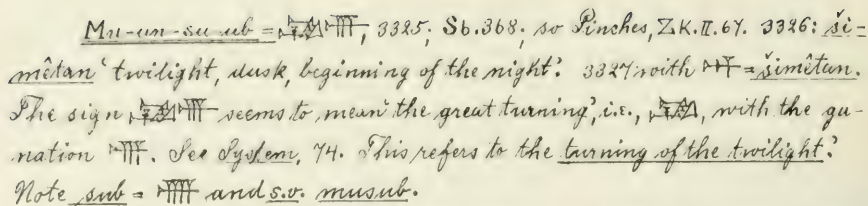 Mu-un-su ub = , 3325; Sb. 368; so Pinches, ZK. II. 67. 3326: ši-
mêtan ‘twilight, dusk, beginning of the night’. 3327 with = šimêtan.
The sign seems to mean ‘the great turning’, i.e., , with the gu-
nation . See System, 74. This refers to the ‘turning of the twilight’.
Note sub = and s.v. musub.